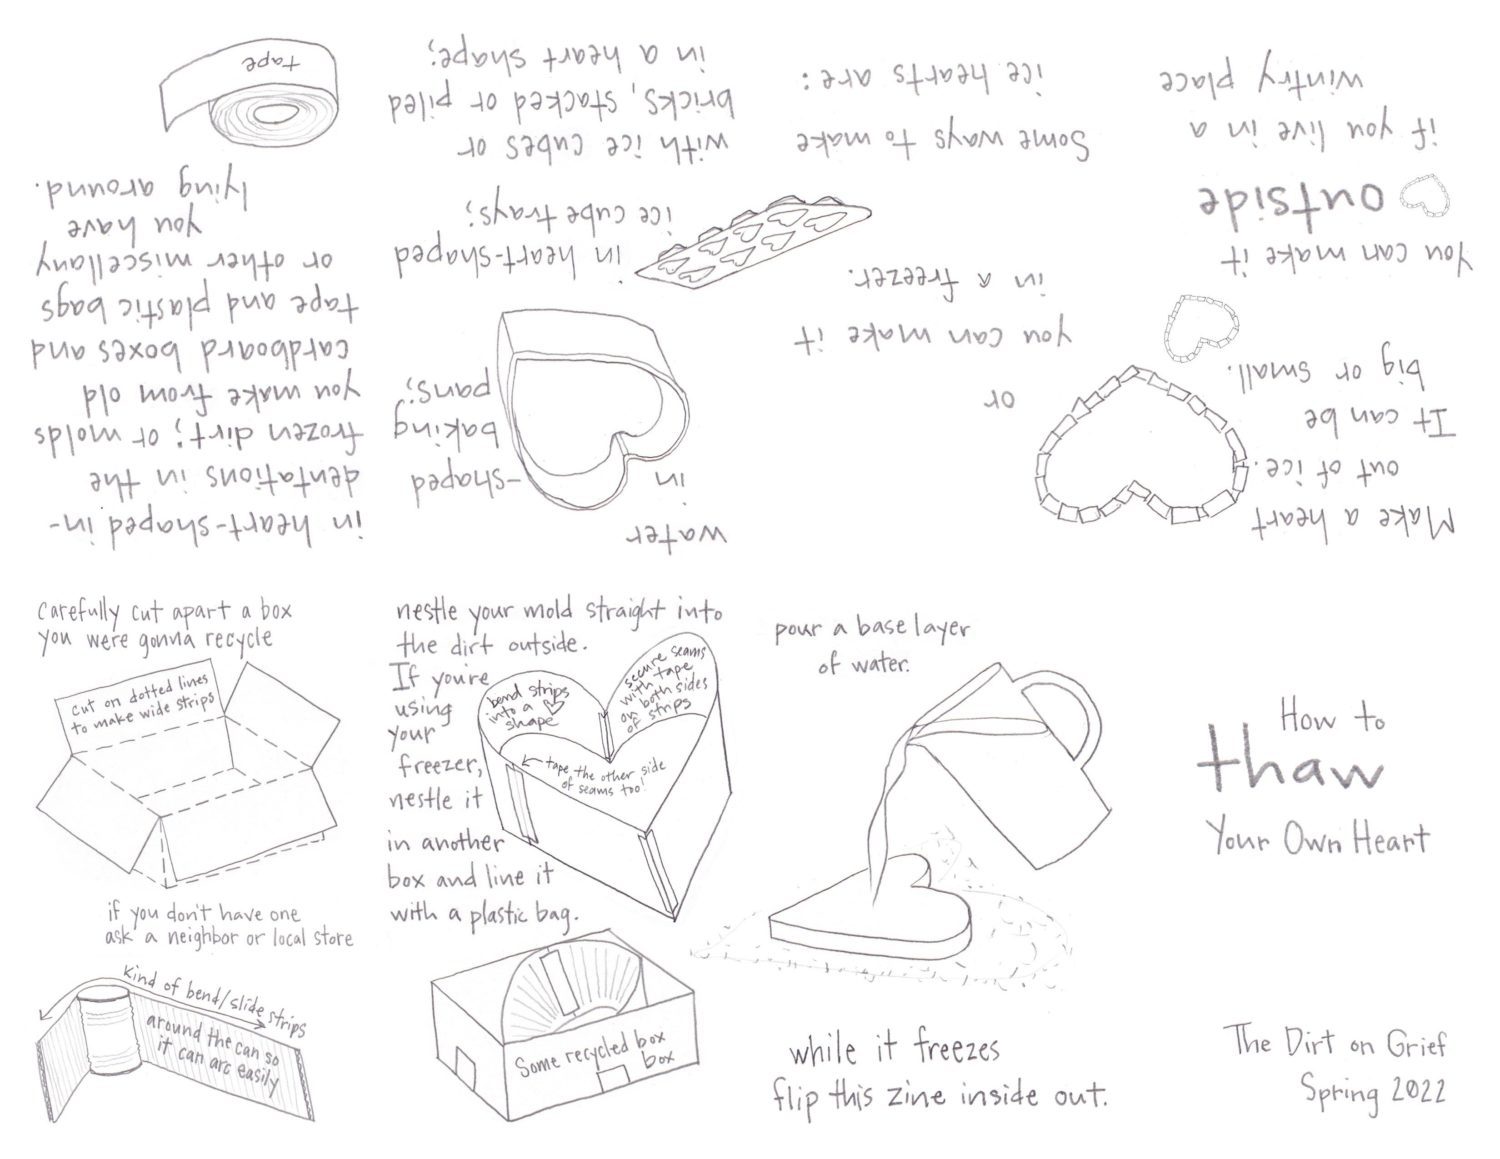 How to
thaw
Your Own Heart
The Dirt on Grief
Spring 2022
Make a heart
out of ice.
It can be
big or small.
You can make it
outside
if you live in a
wintry place
or
you can make it
in a freezer.
Some ways to make
ice hearts are:
water
in -shaped
baking
pans;
in heart-shaped
ice cube trays;
with ice cubes or
bricks, stacked or piled
in a heart shape;
in heart-shaped in-
dentations in the
frozen dirt; or molds
you make from old
cardboard boxes and
tape and plastic bags
or other miscellany
you have
lying around.
tape
carefully cut apart a box
you were gonna recycle
cut on dotted lines
to make wide strips
if you don't have one
ask a neighbor or local store
kind of bend/slide strips
around the can so
it can arc easily
nestle your mold straight into
the dirt outside.
If you're
using
your
freezer,
nestle it
in another
box and line it
with a plastic bag.
bend strips
into a ♡
shape
secure seams
with tape
on both sides
of strips
← tape the other side
of seams too!
Some recycled box
box
pour a base layer
of water.
while it freezes
flip this zine inside out.